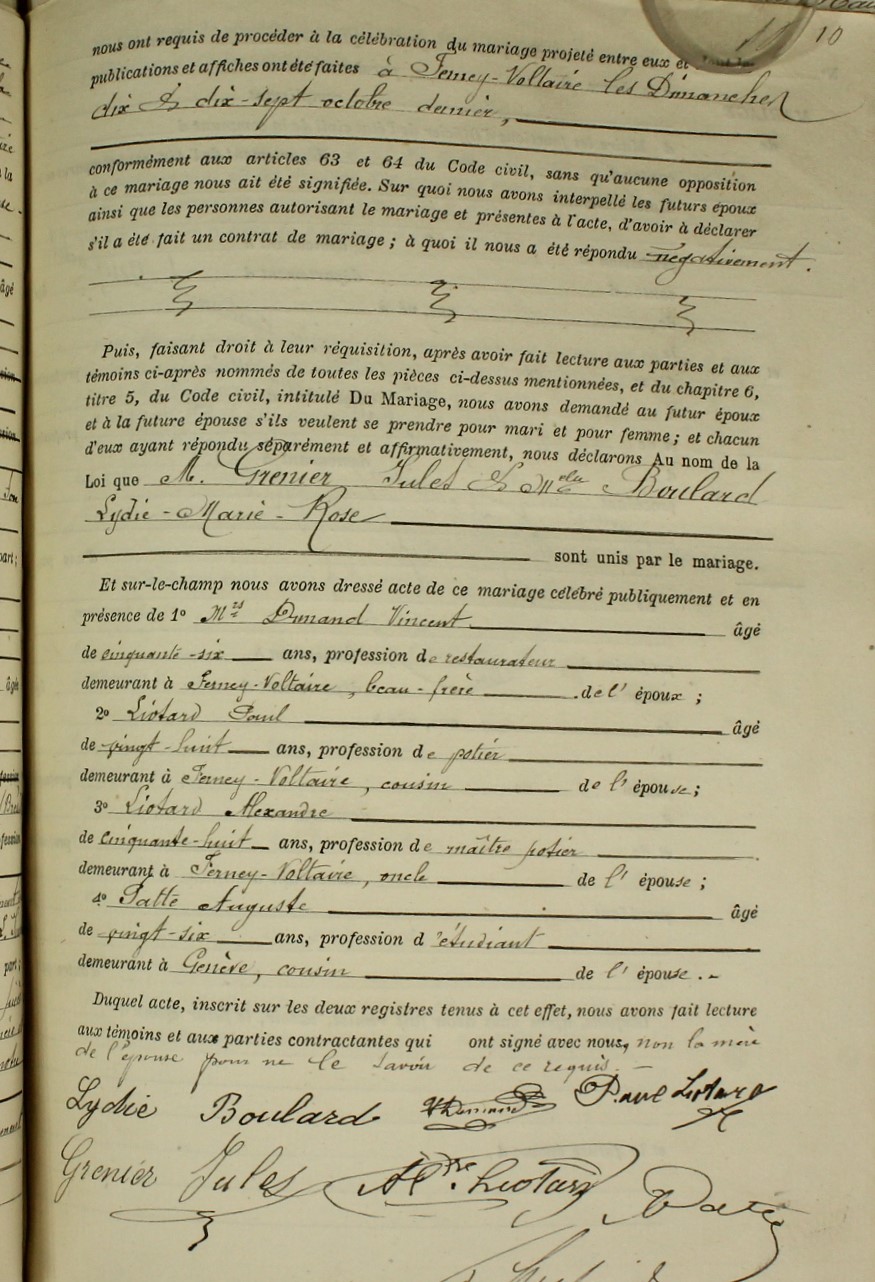 10
nous ont requis de procéder à la célébration du mariage projeté entre eux et
publications et affiches ont été faites à Ferney-Voltaire les Dimanches
dix & dix-sept octobre dernier,
conformément aux articles 63 et 64 du Code civil, sans qu'aucune opposition
à ce mariage nous ait été signifiée. Sur quoi nous avons interpellé les futurs époux
ainsi que les personnes autorisant le mariage et présentes à l'acte, d'avoir à déclarer
s'il a été fait un contrat de mariage ; à quoi il nous a été répondu négativement.
Puis, faisant droit à leur réquisition, après avoir fait lecture aux parties et aux
témoins ci-après nommés de toutes les pièces ci-dessus mentionnées, et du chapitre 6,
titre 5, du Code civil, intitulé Du Mariage, nous avons demandé au futur époux
et à la future épouse s'ils veulent se prendre pour mari et pour femme ; et chacun
d'eux ayant répondu séparément et affirmativement, nous déclarons Au nom de la
Loi que M. Grenier Jules & Melle Boulard
Lydie-Marie-Rose
sont unis par le mariage.
Et sur-le-champ nous avons dressé acte de ce mariage célébré publiquement et en
présence de 1° Mrs Dumand Vincent âgé
de cinquante-six ans, profession de restaurateur
demeurant à Ferney-Voltaire, beau-frère de l'époux ;
2° Liotard Paul âgé
de vingt-huit ans, profession de potier
demeurant à Ferney-Voltaire, cousin de l'épouse ;
3° Liotard Alexandre
de cinquante-huit ans, profession de maître potier
demeurant à Ferney-Voltaire, oncle de l'épouse ;
4° Patte Auguste âgé
de vingt-six ans, profession d'étudiant
demeurant à Genève, cousin de l'épouse.-
Duquel acte, inscrit sur les deux registres tenus à cet effet, nous avons fait lecture
aux témoins et aux parties contractantes qui ont signé avec nous, non la mère
de l'épouse pour ne le savoir de ce requis.-
Lydie Boulard Paul Liotard
Grenier Jules Aldre. Liotard